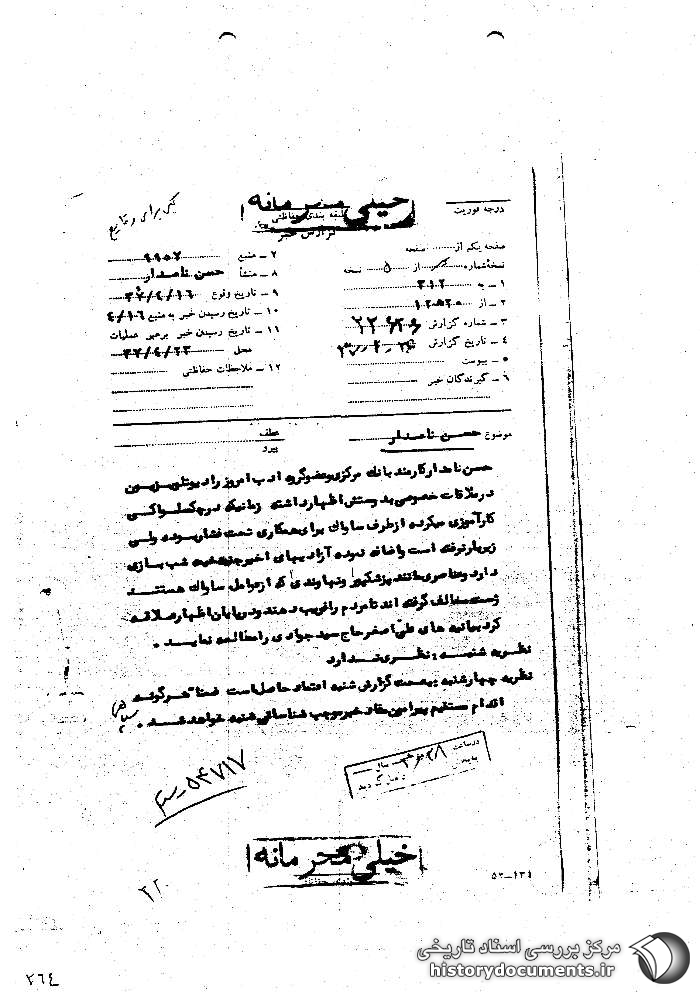 خیلی محرمانه
طبقه بندی حفاظتی
گزارش خبر
درجه فوریت
صفحه یکم از صفحه
نسخه شماره از ۵ نسخه
۱ ـ به ۳۱۲
۲ ـ از ۱۲ ﻫ ۲۰
۳ ـ شماره گزارش
۴ ـ تاریخ گزارش
۵ ـ پیوست
۶ ـ گیرندگان خبر
۷ ـ منبع ۹۹۰۲
۸ ـ منشأ حسن نامدار
۹ ـ تاریخ وقوع ۳۷/۴/۱۶
۱۰ ـ تاریخ رسیدن خبر به منبع ۴/۱۶
۱۱ ـ تاریخ رسیدن خبر برهبر عملیات
محل ۳۷/۴/۲۲
۱۲ ـ ملاحظات حفاظتی
موضوع حسن نامدار
عطف
پیرو
حسن نامدار کارمند بانک مرکزی وعضو گروه ادب امروز رادیو تلویزیون
در ملاقات خصوصی بدوستش اظهار داشته زمانیکه در چکسلواکی
کارآموزی میکرده از طرف ساواک برای همکاری تحت فشار بوده ولی
زیربار نرفته است واضافه نموده آزادیهای اخیر جنبه خیمه شب بازی
دارد وعناصری مانند پزشکپور وبنی‌ا
دی که از عوامل ساواک هستند
ژست مخالف گرفته اند تا مردم را فریب دهند ودر پایان اظهار علاقه
کرد بیانیه های علی اصغر حاج سید جوادی را مطالعه نماید .
نظریه شنبه : نظری ندارد
نظریه چهارشنبه بصحت گزارش شنبه اعتماد حاصل است ضمنا" هرگونه
اقدام مستقیم پیرامون مفاد خبر موجب شناسائی شنبه خواهد شد .
خیلی محرمانه
۲۲
۲٦٤
مرکز بررسی اسناد تاریخی
historydocuments.ir